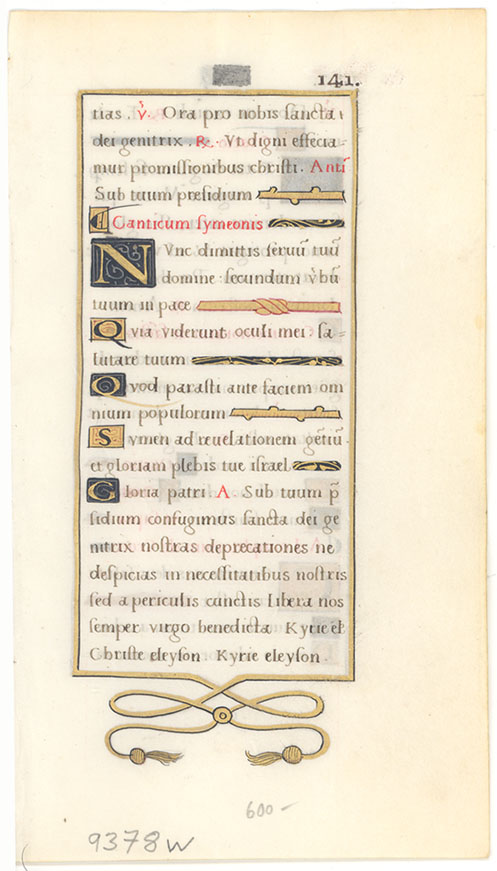 141.
tias . v̇. Ora pro nobis sancta ⁊
dei genitrix . R. Vt digni efficia=
mur promissionibus christi. Antī
Sub tuum presidium
Canticum symeonis
Nunc dimittis seruū tuū
domine : secundum v̇bū
tuum in pace
Quia viderunt oculi mei : sa=
lutare tuum
Quod parasti ante faciem om
nium populorum
Lumen ad reuelationem gētiū.
et gloriam plebis tue israel
Gloria patri. A Sub tuum p̄
sidium confugimus sancta dei ge
nitrix nostras deprecationes ne
despicias in necessitatibus nostris
sed a periculis cunctis libera nos
semper virgo benedicta Kyrie el
Christe eleyson Kyrie eleyson.
600-
9378W